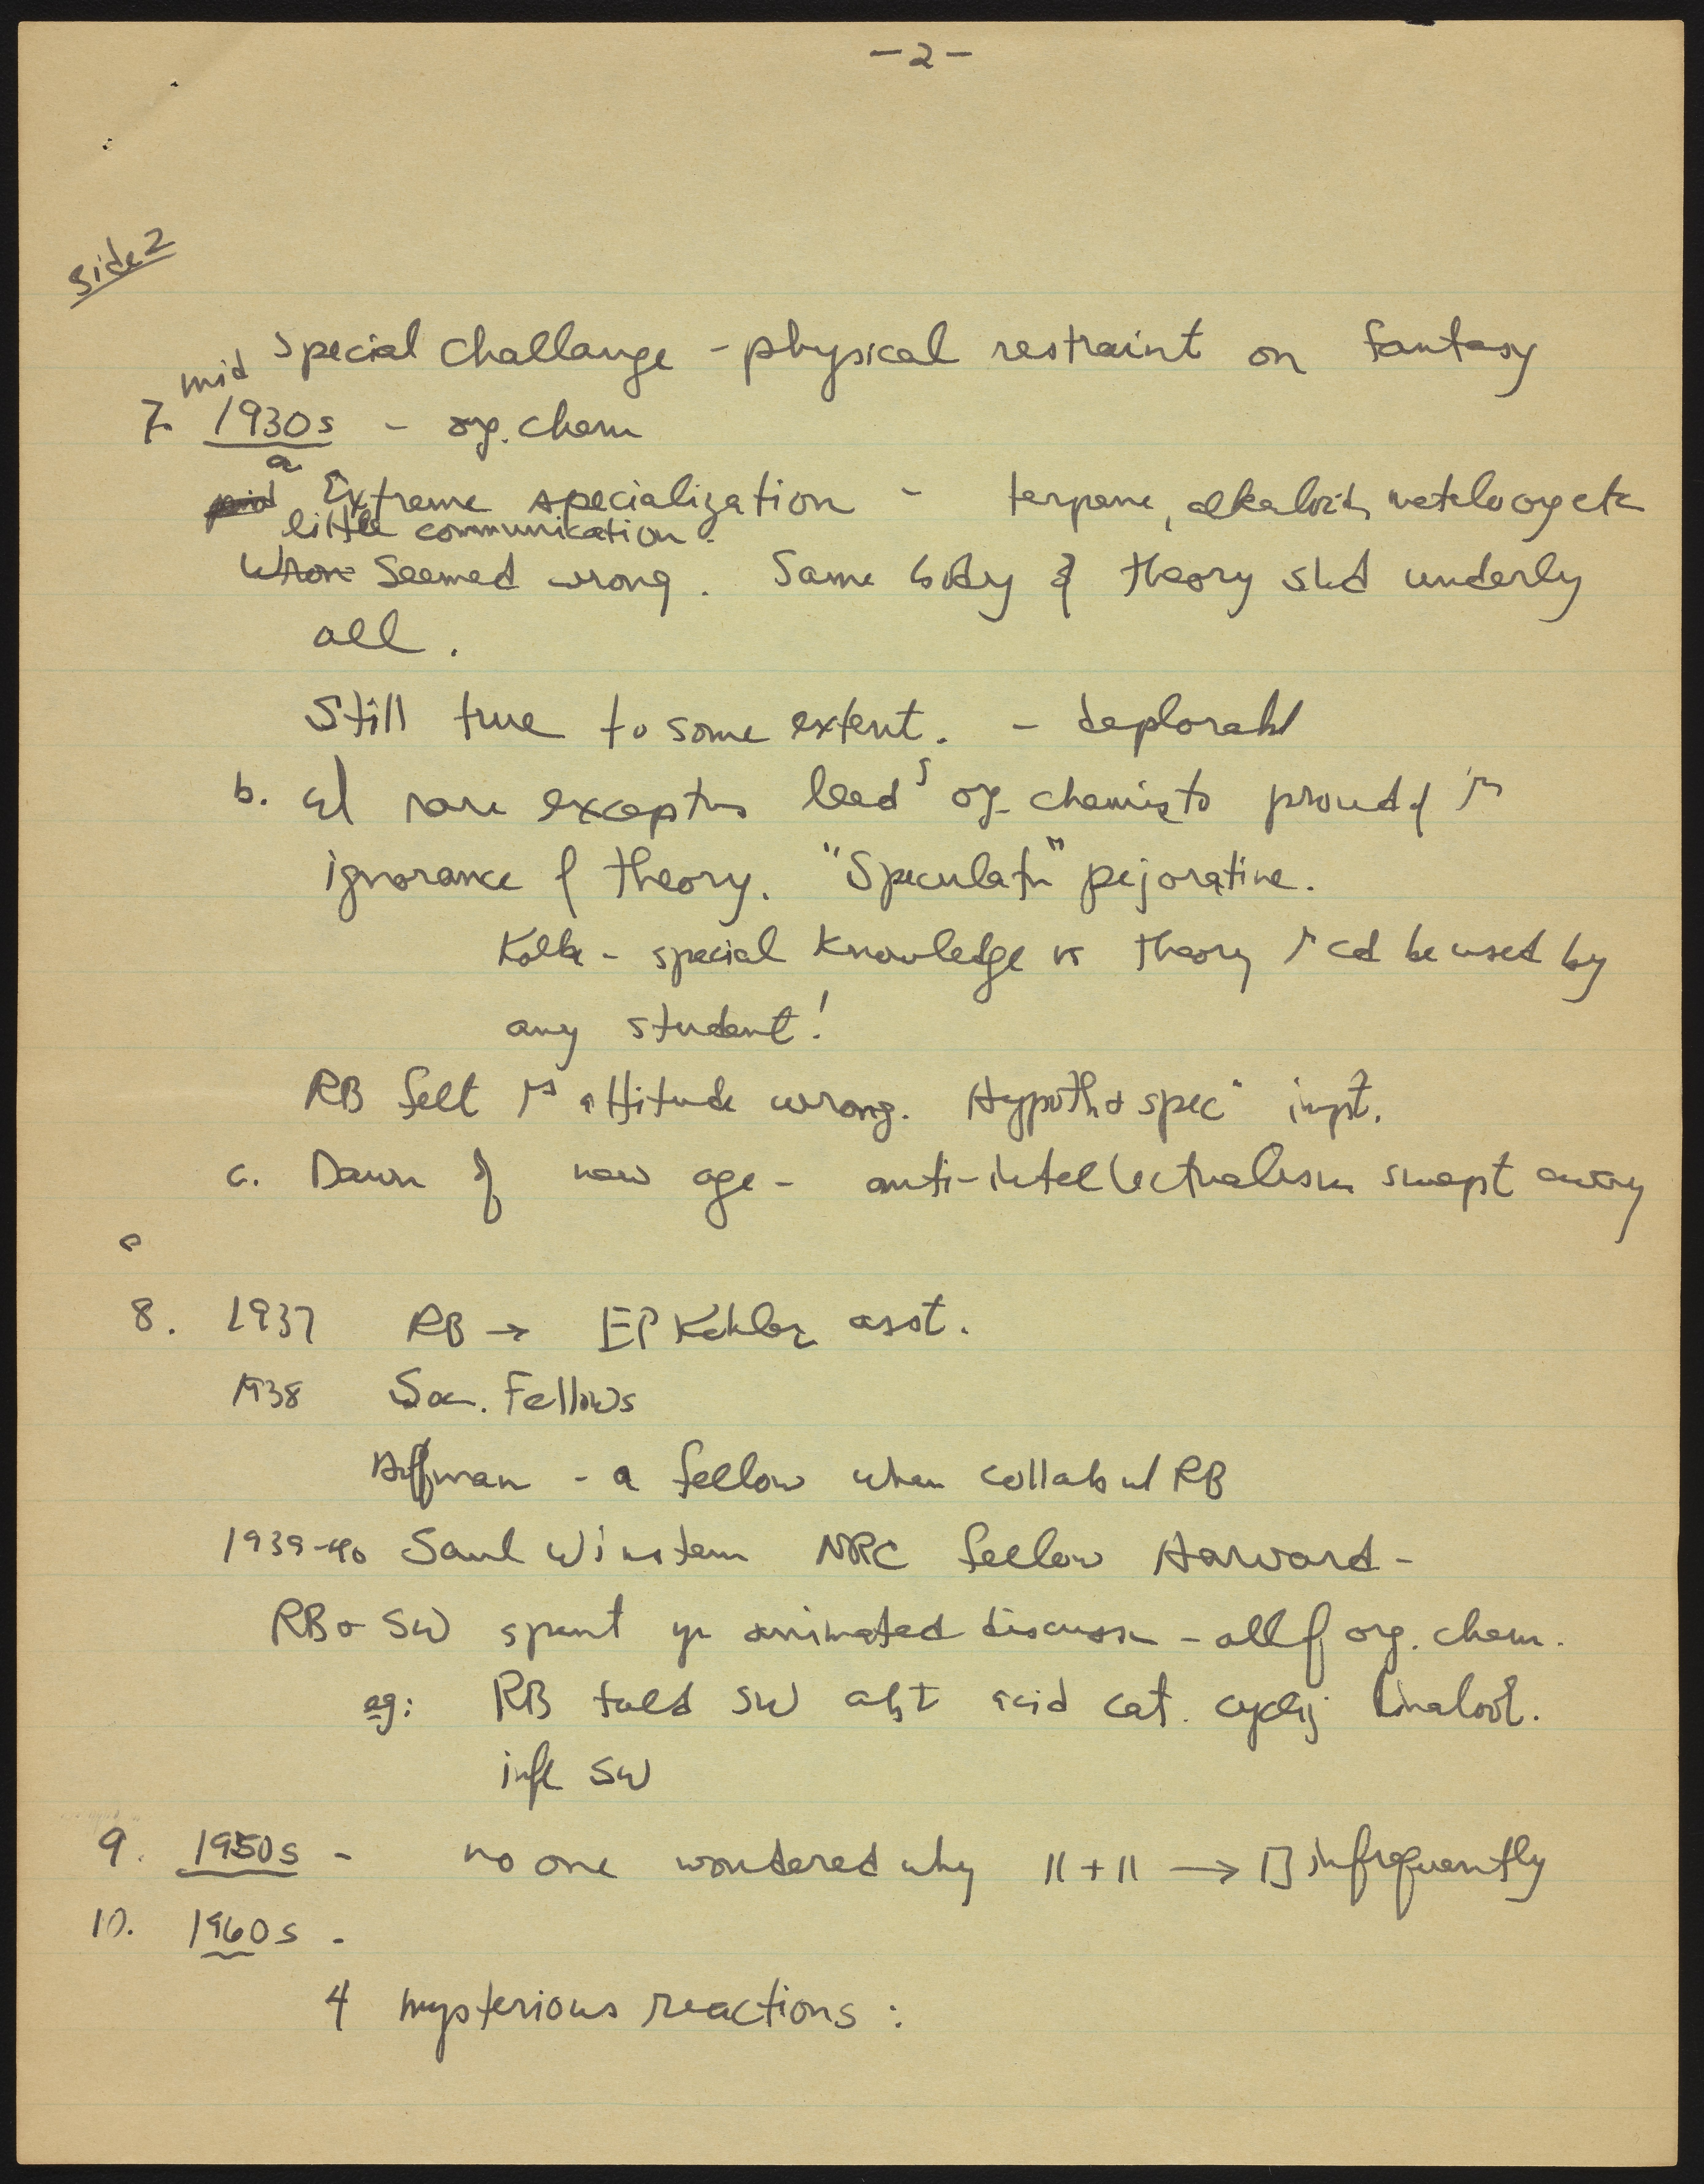 -2-
side 2
special challange - physical restraint on fantasy
mid
7. 1930s - org. chem
a Extreme specialization - terpene, alkaloid, etc
little communication.
Wron Seemed wrong. Same body of theory shd underly
all.
Still true to some extent. - deplorabl
b. w/ rare exceptns lead^g org. chemists proud of
ignorance of theory. "Speculatn" pejorative.
Kolbe - special knowledge vs theory cd be used by
any student!
RB felt attitude wrong. Hypoth & spec^n impt.
c. Dawn of new age - anti-intellectualism swept away
8. 1937 RB → EP Kohler asst.
1938 Soc. Fellows
Hoffman - a fellow when collab w/ RB
1939-40 Saul Winstein NRC fellow Harvard -
RB & SW spent yr animated discussn - all of org. chem.
eg: RB told SW abt acid cat. linalool.
infl SW
9. 1950s - no one wondered why || + || → □ infrequently
10. 1960s -
4 mysterious reactions: